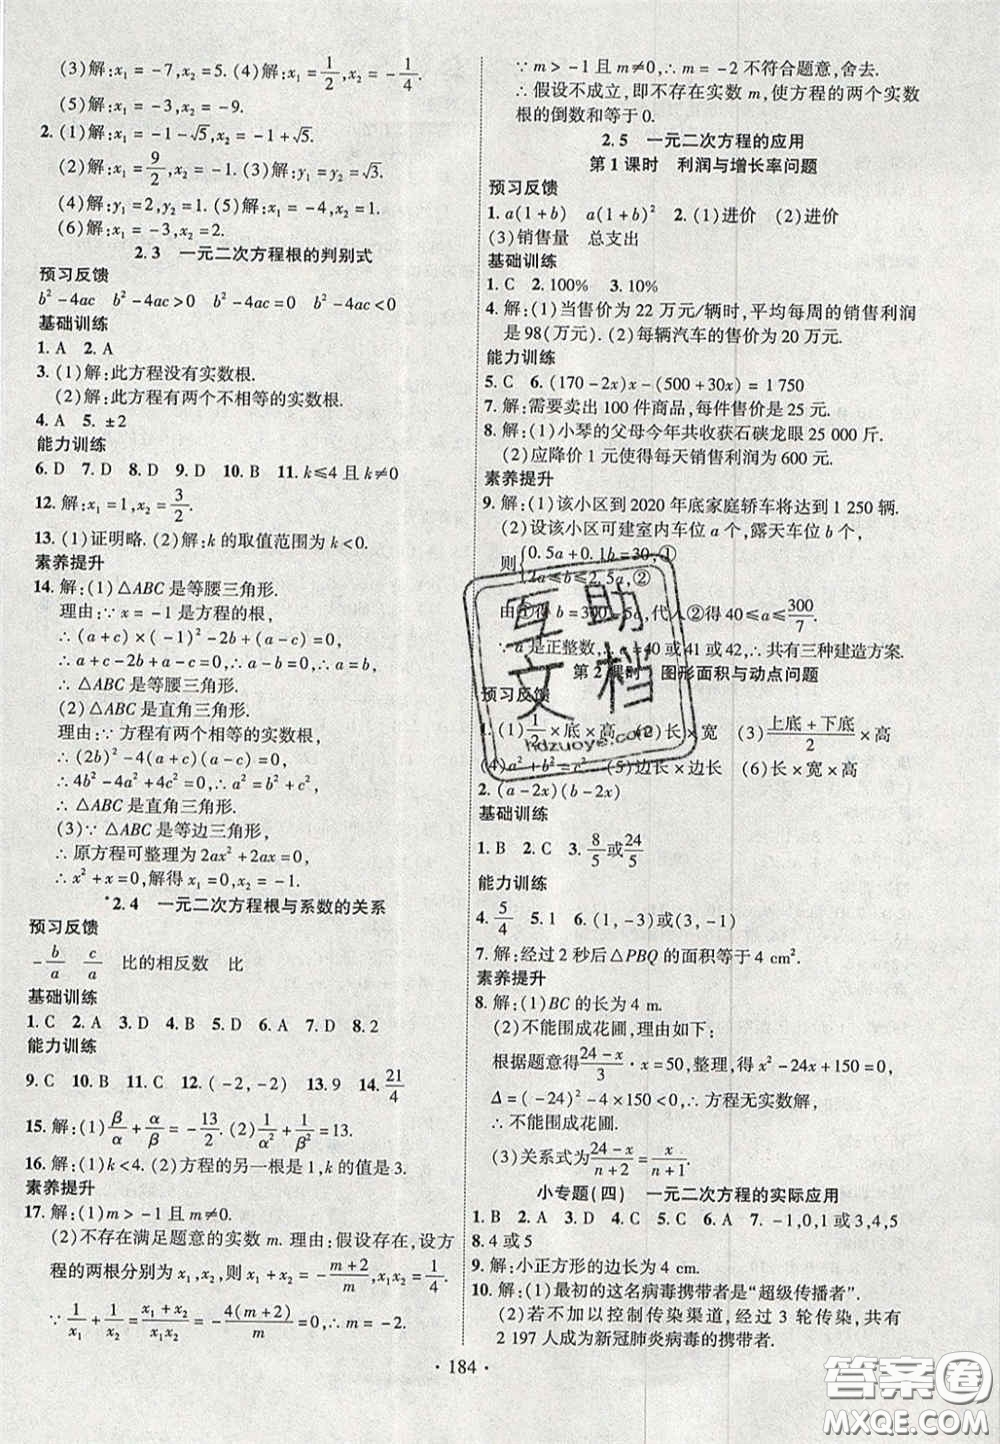 (3)解:x₁=-7,x₂=5. (4)解:x₁=1/2,x₂=-1/4.
(5)解:x₁=-3,x₂=-9.
2. (1)解:x₁=-1-√5,x₂=-1+√5.
(2)解:x₁=9/2,x₂=-1. (3)解:y₁=y₂=√3.
(4)解:y₁=2,y₂=1. (5)解:x₁=-4,x₂=1.
(6)解:x₁=-3,x₂=2.
2.3 一元二次方程根的判别式
预习反馈
b²-4ac b²-4ac>0 b²-4ac=0 b²-4ac<0
基础训练
1. A 2. A
3. (1)解:此方程没有实数根.
(2)解:此方程有两个不相等的实数根.
4. A 5. ±2
能力训练
6. D 7. D 8. D 9. D 10. B 11. k≤4 且 k≠0
12. 解:x₁=1,x₂=3/2.
13. (1)证明略. (2)解:k 的取值范围为 k<0.
素养提升
14. 解:(1)△ABC 是等腰三角形.
理由:∵x=-1 是方程的根,
∴(a+c)×(-1)²-2b+(a-c)=0,
∴a+c-2b+a-c=0,∴a-b=0,∴a=b,
∴△ABC 是等腰三角形.
(2)△ABC 是直角三角形.
理由:∵方程有两个相等的实数根,
∴(2b)²-4(a+c)(a-c)=0,
∴4b²-4a²+4c²=0,∴a²=b²+c²,
∴△ABC 是直角三角形.
(3)∵△ABC 是等边三角形,
∴原方程可整理为 2ax²+2ax=0,
∴x²+x=0,解得 x₁=0,x₂=-1.
*2.4 一元二次方程根与系数的关系
预习反馈
-b/a c/a 比的相反数 比
基础训练
1. C 2. A 3. D 4. D 5. D 6. A 7. D 8. 2
能力训练
9. C 10. B 11. C 12. (-2,-2) 13. 9 14. 21/4
15. 解:(1)β/α+α/β=-13/2. (2)1/α²+1/β²=13.
16. 解:(1)k<4. (2)方程的另一根是 1,k 的值是 3.
素养提升
17. 解:(1)m>-1 且 m≠0.
(2)不存在满足题意的实数 m. 理由:假设存在,设方
程的两根分别为 x₁,x₂,则 x₁+x₂=-(m+2)/m,x₁x₂=1/4,
∵1/x₁+1/x₂=(x₁+x₂)/x₁x₂=-4(m+2)/m=0,∴m=-2.
∵m>-1 且 m≠0,∴m=-2 不符合题意,舍去.
∴假设不成立,即不存在实数 m,使方程的两个实数
根的倒数和等于 0.
2.5 一元二次方程的应用
第 1 课时 利润与增长率问题
预习反馈
1. a(1+b) a(1+b)² 2. (1)进价 (2)进价
(3)销售量 总支出
基础训练
1. C 2. 100% 3. 10%
4. 解:(1)当售价为 22 万元/辆时,平均每周的销售利润
是 98(万元). (2)每辆汽车的售价为 20 万元.
能力训练
5. C 6. (170-2x)x-(500+30x)=1 750
7. 解:需要卖出 100 件商品,每件售价是 25 元.
8. 解:(1)小琴的父母今年共收获石硖龙眼 25 000 斤.
(2)应降价 1 元使得每天销售利润为 600 元.
素养提升
9. 解:(1)该小区到 2020 年底家庭轿车将达到 1 250 辆.
(2)设该小区可建室内车位 a 个,露天车位 b 个,
则{0.5a+0.1b=30,①
2a≤b≤2.5a,②
由①得 b=300-5a,代入②得 40≤a≤300/7.
∵a 是正整数,∴a=40 或 41 或 42,∴共有三种建造方案.
第 2 课时 图形面积与动点问题
预习反馈
1. (1)1/2×底×高 (2)长×宽 (3)(上底+下底)/2×高
(4)a²+b²=c² (5)边长×边长 (6)长×宽×高
2. (a-2x)(b-2x)
基础训练
1. B 2. C 3. 8/5或24/5
能力训练
4. 5/4 5. 1 6. (1,-3)或(3,-1)
7. 解:经过 2 秒后△PBQ 的面积等于 4 cm².
素养提升
8. 解:(1)BC 的长为 4 m.
(2)不能围成花圃,理由如下:
根据题意得(24-x)/3·x=50,整理,得 x²-24x+150=0,
Δ=(-24)²-4×150<0,∴方程无实数解,
∴不能围成花圃.
(3)关系式为(24-x)/(n+2)=x/(n+1).
小专题(四) 一元二次方程的实际应用
1. B 2. A 3. C 4. C 5. 9 6. A 7. -1,0,1 或 3,4,5
8. 4 或 5
9. 解:小正方形的边长为 4 cm.
10. 解:(1)最初的这名病毒携带者是“超级传播者”.
(2)若不加以控制传染渠道,经过 3 轮传染,共有
2 197 人成为新冠肺炎病毒的携带者.
· 184 ·
互助
文档
hdzuoye.com
答案圈
MXQE.COM